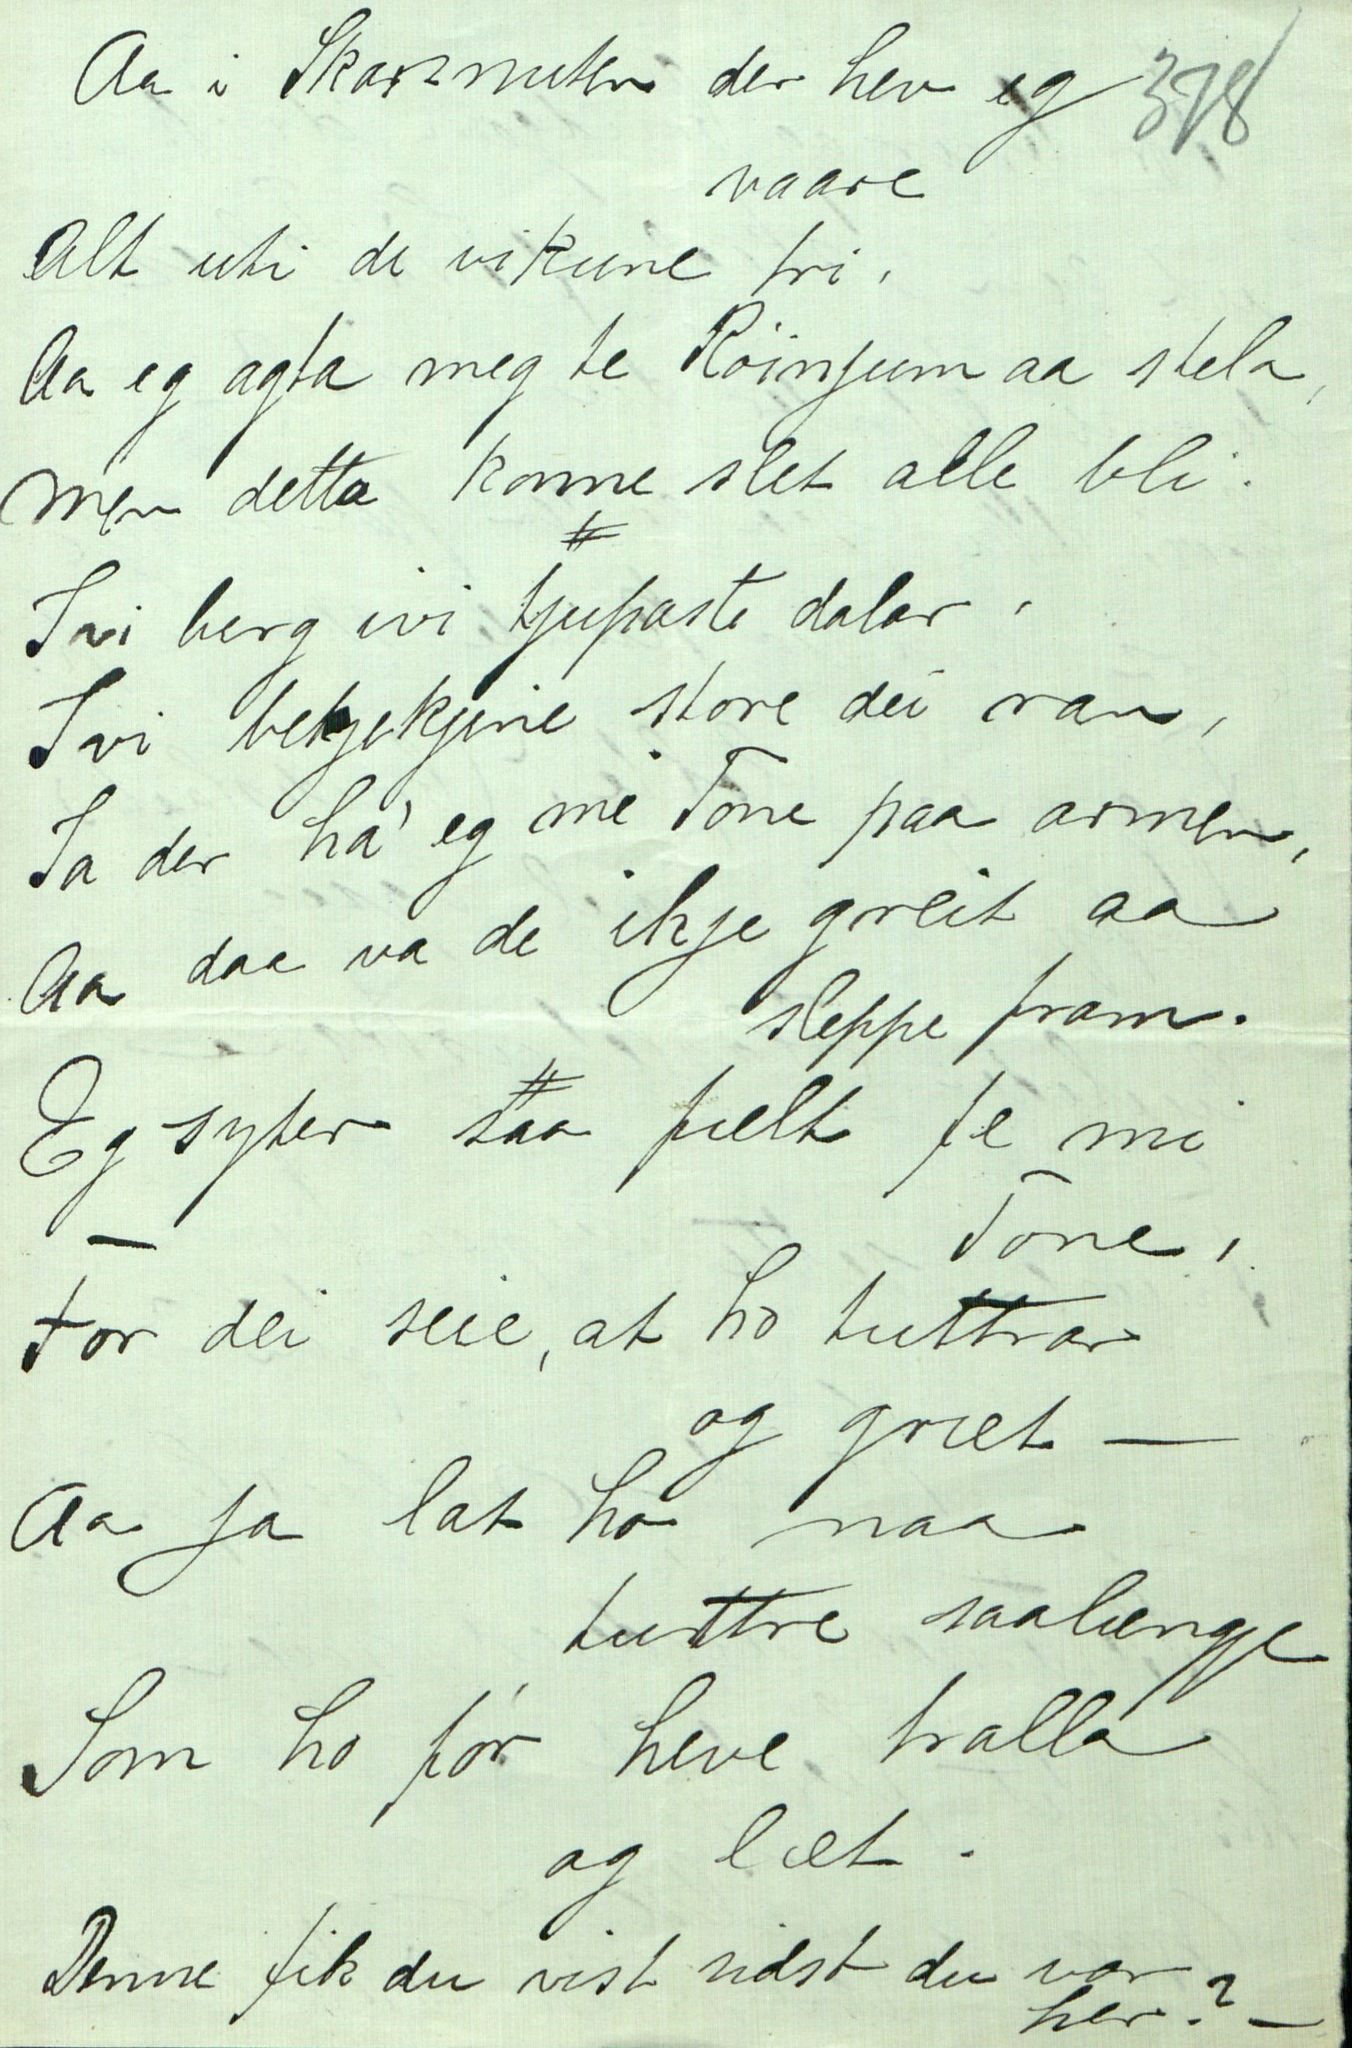 Aa i Skarsnuten der hev eg 378
vaare
Alt uti de vikune tri,
Aa eg agta meg te Roinjum aa stela,
men detta konne slet alle bli.
#
Ivi berg ivi tjupaste dalar,
Ivi bekjekjine store dei ran,
Ja der ha' eg mi Tone paa armen,
Aa daa va de ikje greit aa
sleppe fram.
#
Eg syter saa fælt fe mi
Tone,
For dei seie, at ho tuttrar
og græt —
Aa ja lat ho naa
tuttre saalenge
Som ho før heve tralla
og læt.
Denne fik du vist sidst du var
her? —